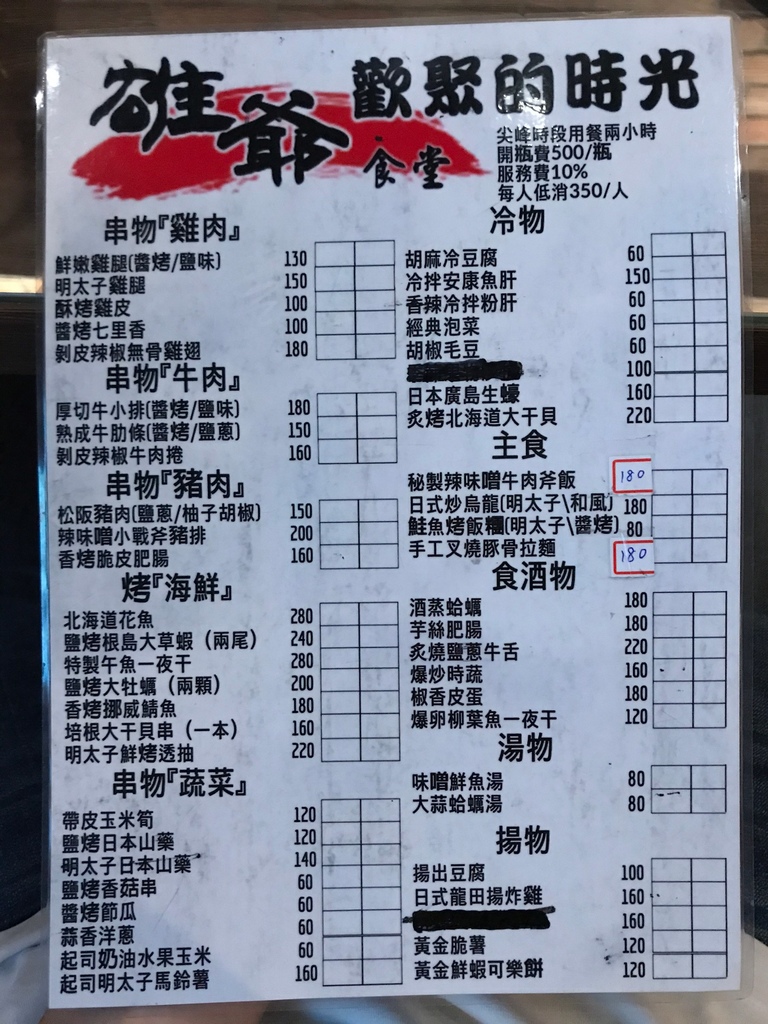 雄爺食堂 歡聚的時光
尖峰時段用餐兩小時
開瓶費500/瓶
服務費10%
每人低消350/人
串物『雞肉』
鮮嫩雞腿(醬烤/鹽味) 130
明太子雞腿 150
酥烤雞皮 100
醬烤七里香 100
剝皮辣椒無骨雞翅 180
串物『牛肉』
厚切牛小排(醬烤/鹽味) 180
熟成牛肋條(醬烤/鹽蔥) 150
剝皮辣椒牛肉捲 160
串物『豬肉』
松阪豬肉(鹽蔥/柚子胡椒) 150
辣味噌小戰斧豬排 200
香烤脆皮肥腸 160
烤『海鮮』
北海道花魚 280
鹽烤根島大草蝦（兩尾） 240
特製午魚一夜干 280
鹽烤大牡蠣（兩顆） 200
香烤挪威鯖魚 180
培根大干貝串（一本） 160
明太子鮮烤透抽 220
串物『蔬菜』
帶皮玉米筍 120
鹽烤日本山藥 120
明太子日本山藥 140
鹽烤香菇串 60
醬烤節瓜 60
蒜香洋蔥 60
起司奶油水果玉米 60
起司明太子馬鈴薯 160
冷物
胡麻冷豆腐 60
冷拌安康魚肝 150
香辣冷拌粉肝 60
經典泡菜 60
胡椒毛豆 60
100
日本廣島生蠔 160
炙烤北海道大干貝 220
主食
秘製辣味噌牛肉斧飯 180
日式炒烏龍(明太子\和風) 180
鮭魚烤飯糰(明太子\醬烤) 80
手工叉燒豚骨拉麵 180
食酒物
酒蒸蛤蠣 180
芋絲肥腸 180
炙燒鹽蔥牛舌 220
爆炒時蔬 160
椒香皮蛋 180
爆卵柳葉魚一夜干 120
湯物
味噌鮮魚湯 80
大蒜蛤蠣湯 80
揚物
揚出豆腐 100
日式龍田揚炸雞 160
160
黃金脆薯 120
黃金鮮蝦可樂餅 120